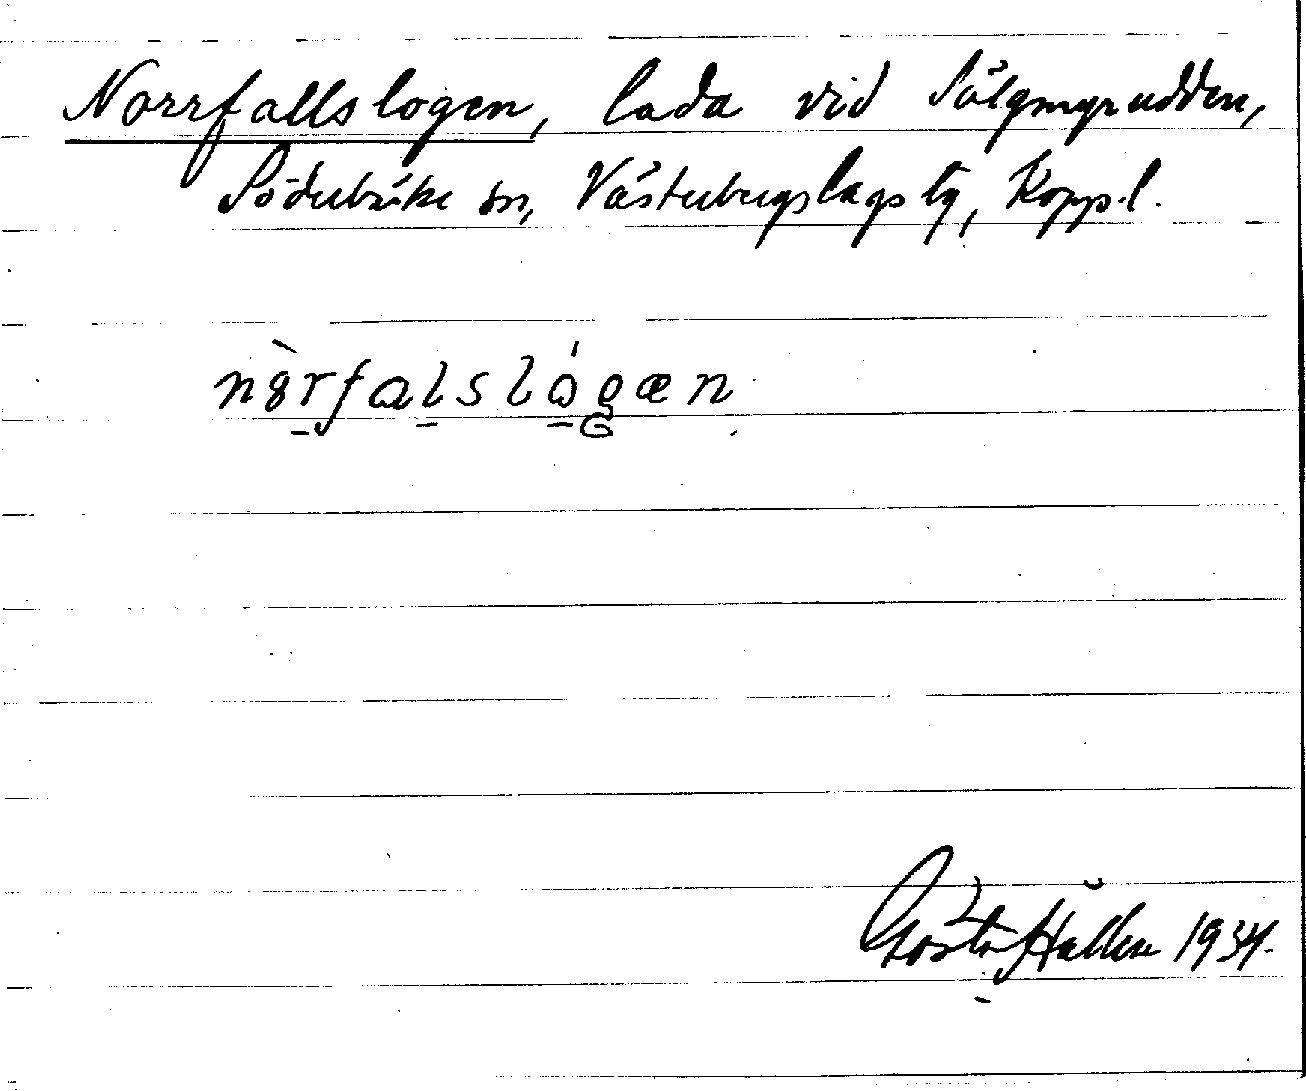 Norrfallslogen, lada vid Sälgmyrudden,
Söderbärke sn, Västerbergslags tg, Kopp.l.
nòrfalslógæn
Gösta Hallén 1934.